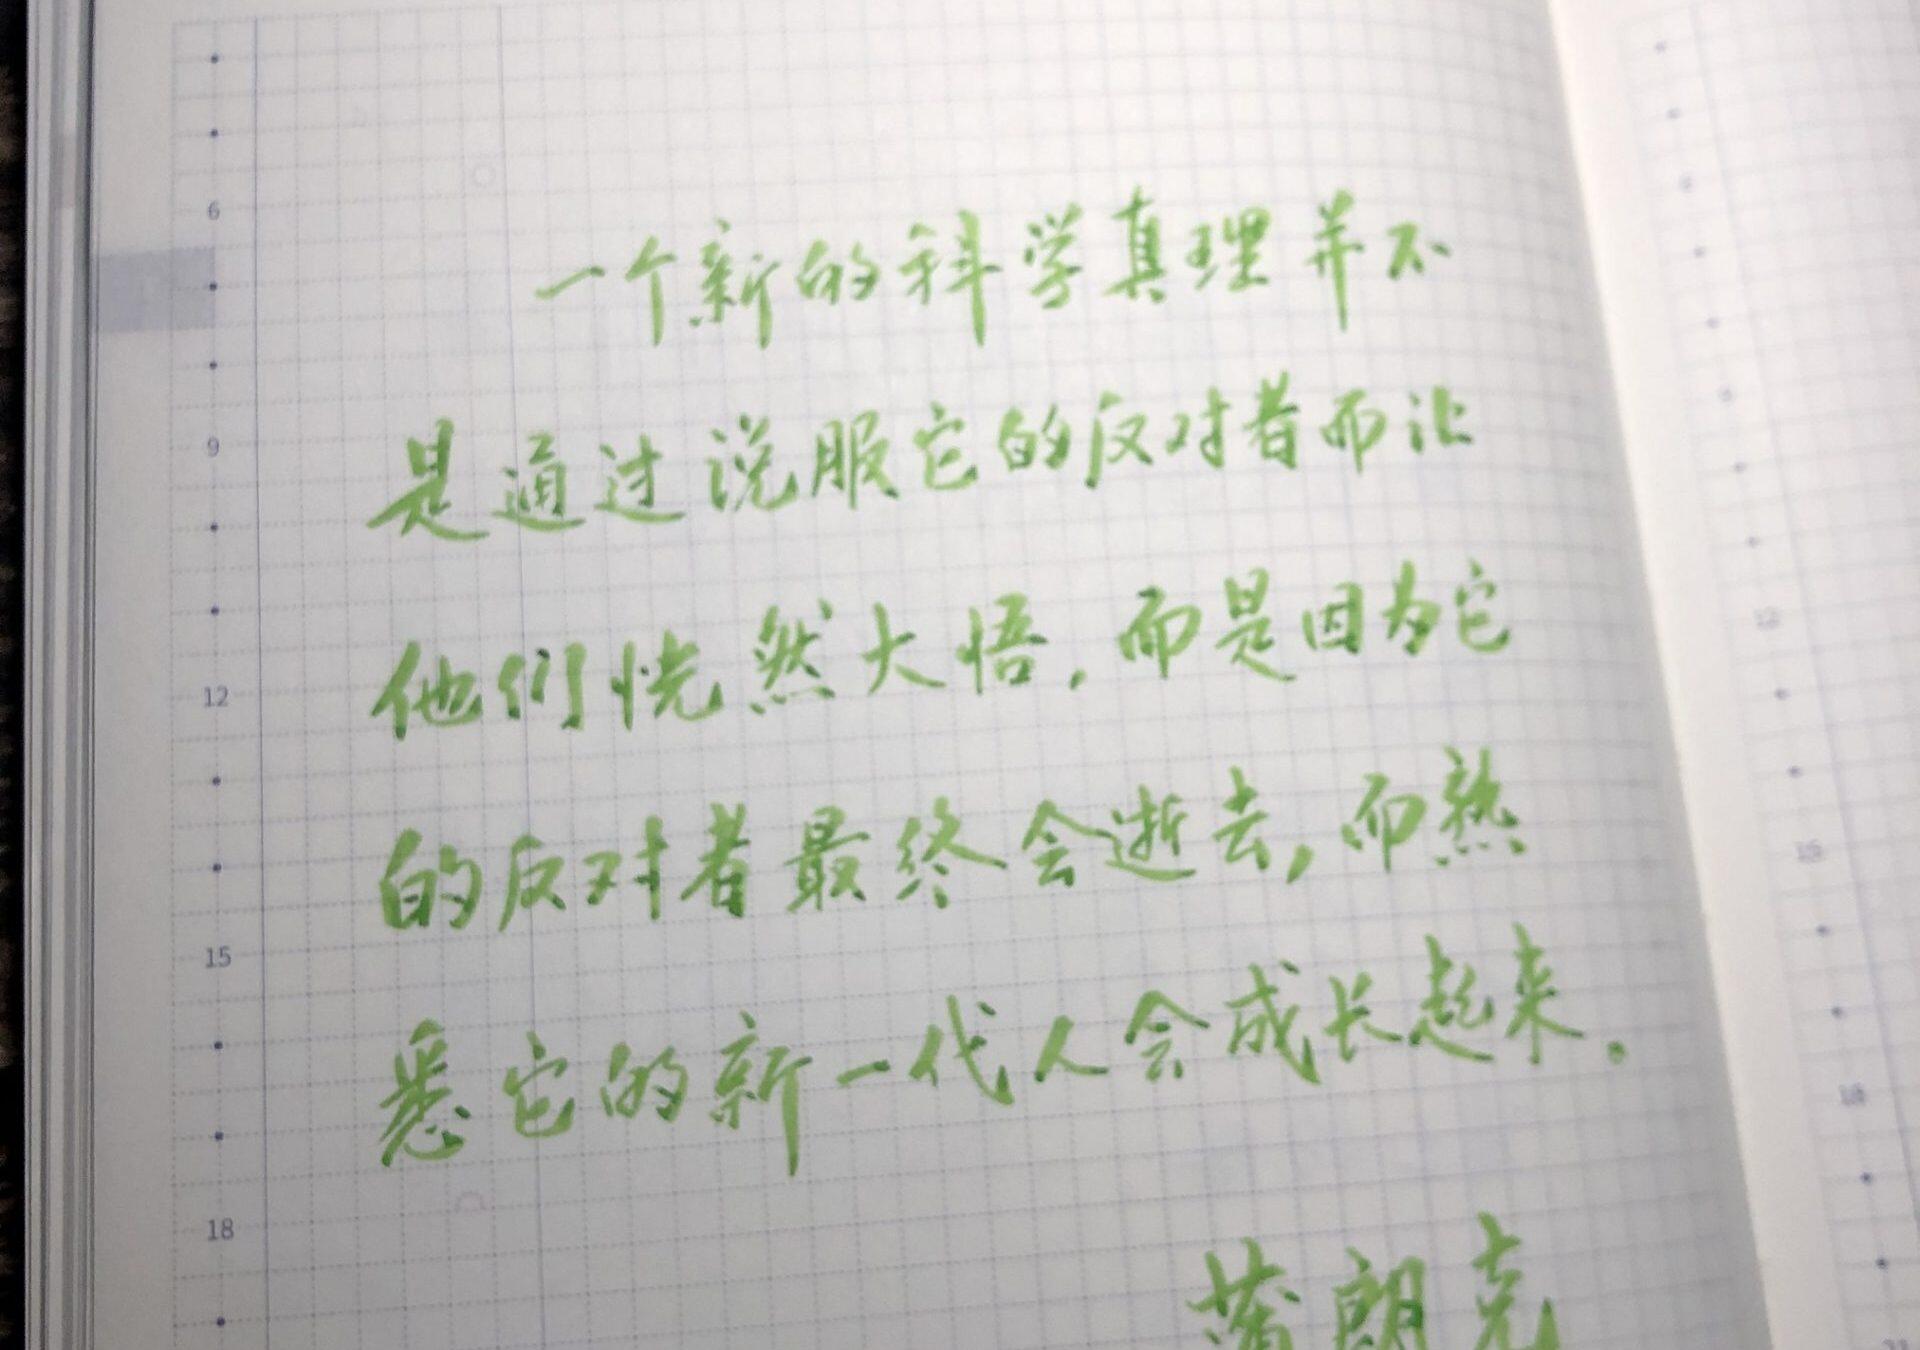 6
一个新的科学真理并不
9
是通过说服它的反对者而让
12
他们恍然大悟,而是因为它
的反对者最终会逝去,而熟
15
悉它的新一代人会成长起来。
18
蒲朗克
12
15
18